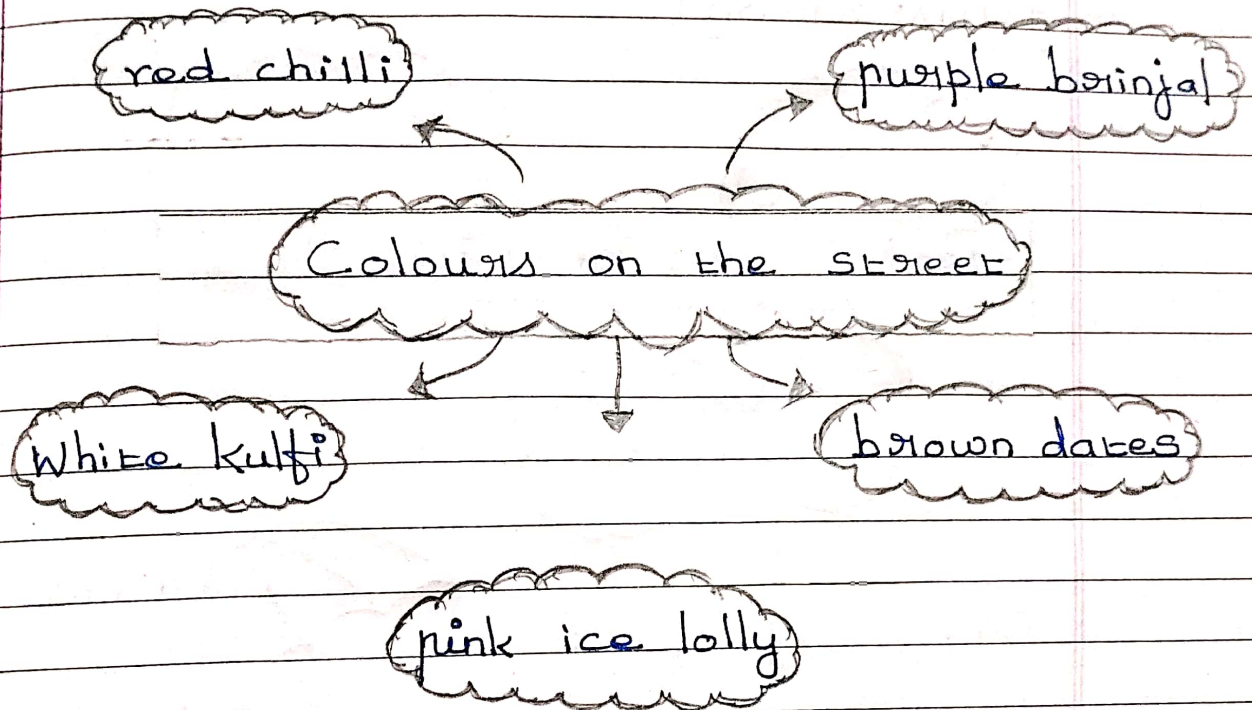 red chilli
purple brinjal
Colours on the street
White kulfi
brown dates
pink ice lolly